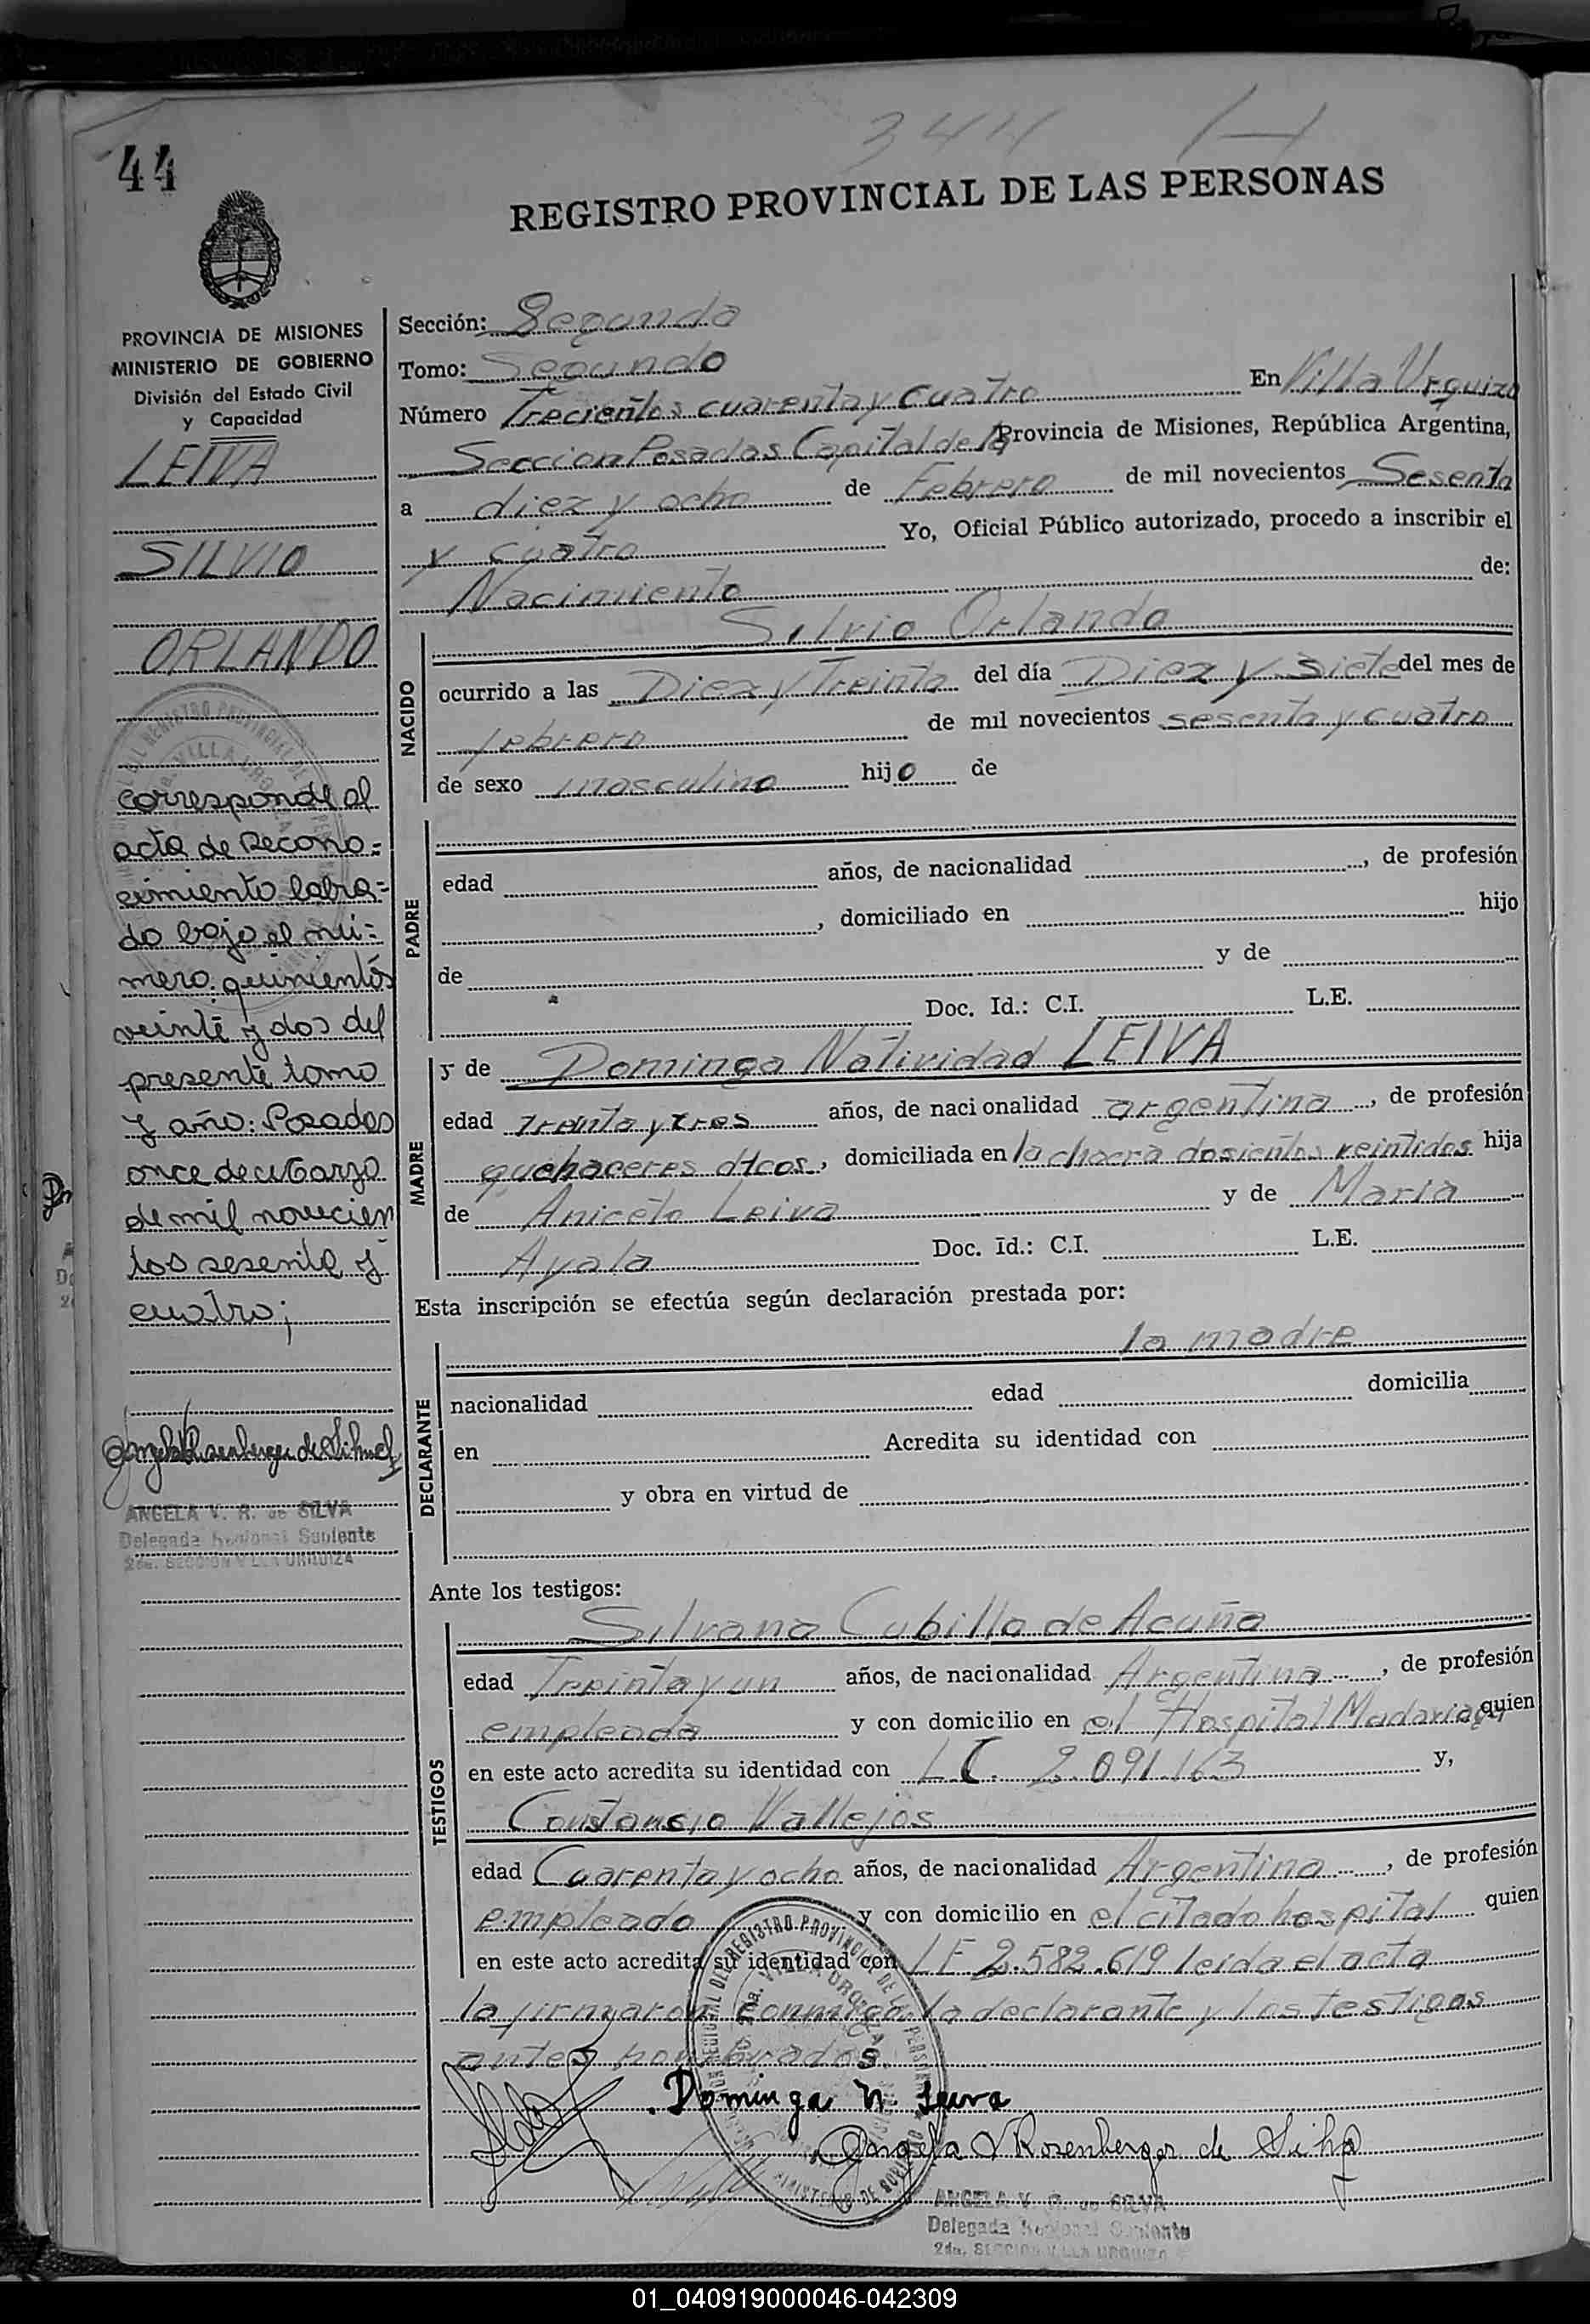 344
44
REGISTRO PROVINCIAL DE LAS PERSONAS
PROVINCIA DE MISIONES
MINISTERIO DE GOBIERNO
División del Estado Civil
y Capacidad
LEIVA
SILVIO
ORLANDO
corresponde al
acta de Recono=
cimiento labra=
do bajo el nú=
mero quinientos
veinte y dos del
presente tomo
y año: Posadas
once de Marzo
de mil novecien
tos sesenta y
cuatro;
ANGELA V. R. de SILVA
Delegada Regional Suplente
2da. SECCION VILLA URQUIZA
Sección: Segunda
Tomo: Segundo
Número Trecientos cuarenta y cuatro En Villa Urquiza
Seccion Posadas Capital de la Provincia de Misiones, República Argentina,
a diez y ocho de Febrero de mil novecientos Sesenta
y cuatro Yo, Oficial Público autorizado, procedo a inscribir el
Nacimiento de:
NACIDO
Silvio Orlando
ocurrido a las Diez y Treinta del día Diez y siete del mes de
febrero de mil novecientos sesenta y cuatro
de sexo masculino hijo de
PADRE
edad años, de nacionalidad , de profesión
, domiciliado en hijo
de y de
Doc. Id.: C.I. L.E.
MADRE
y de Dominga Natividad LEIVA
edad treinta y tres años, de nacionalidad argentina, de profesión
quehaceres dtcos, domiciliada en la chacra dosientos veintidos hija
de Aniceto Leiva y de Maria
Ayala Doc. Id.: C.I. L.E.
Esta inscripción se efectúa según declaración prestada por:
DECLARANTE
la madre
nacionalidad edad domicilia
en Acredita su identidad con
y obra en virtud de
Ante los testigos:
TESTIGOS
Silvana Cubilla de Acuña
edad Treinta y un años, de nacionalidad Argentina, de profesión
empleada y con domicilio en el Hospital Madariaga quien
en este acto acredita su identidad con LC. 2.091.163 y,
Constancio Vallejos
edad Cuarenta y ocho años, de nacionalidad Argentina, de profesión
empleado y con domicilio en el citado hospital quien
en este acto acredita su identidad con LE 2.582.619 leida el acta
la firmaron conmigo la declarante y los testigos
antes nombrados.
Dominga N. Leiva
Angela V Rosenberger de Silva
ANGELA V. R. de SILVA
Delegada Regional Suplente
2da. SECCION VILLA URQUIZA
01_040919000046-042309